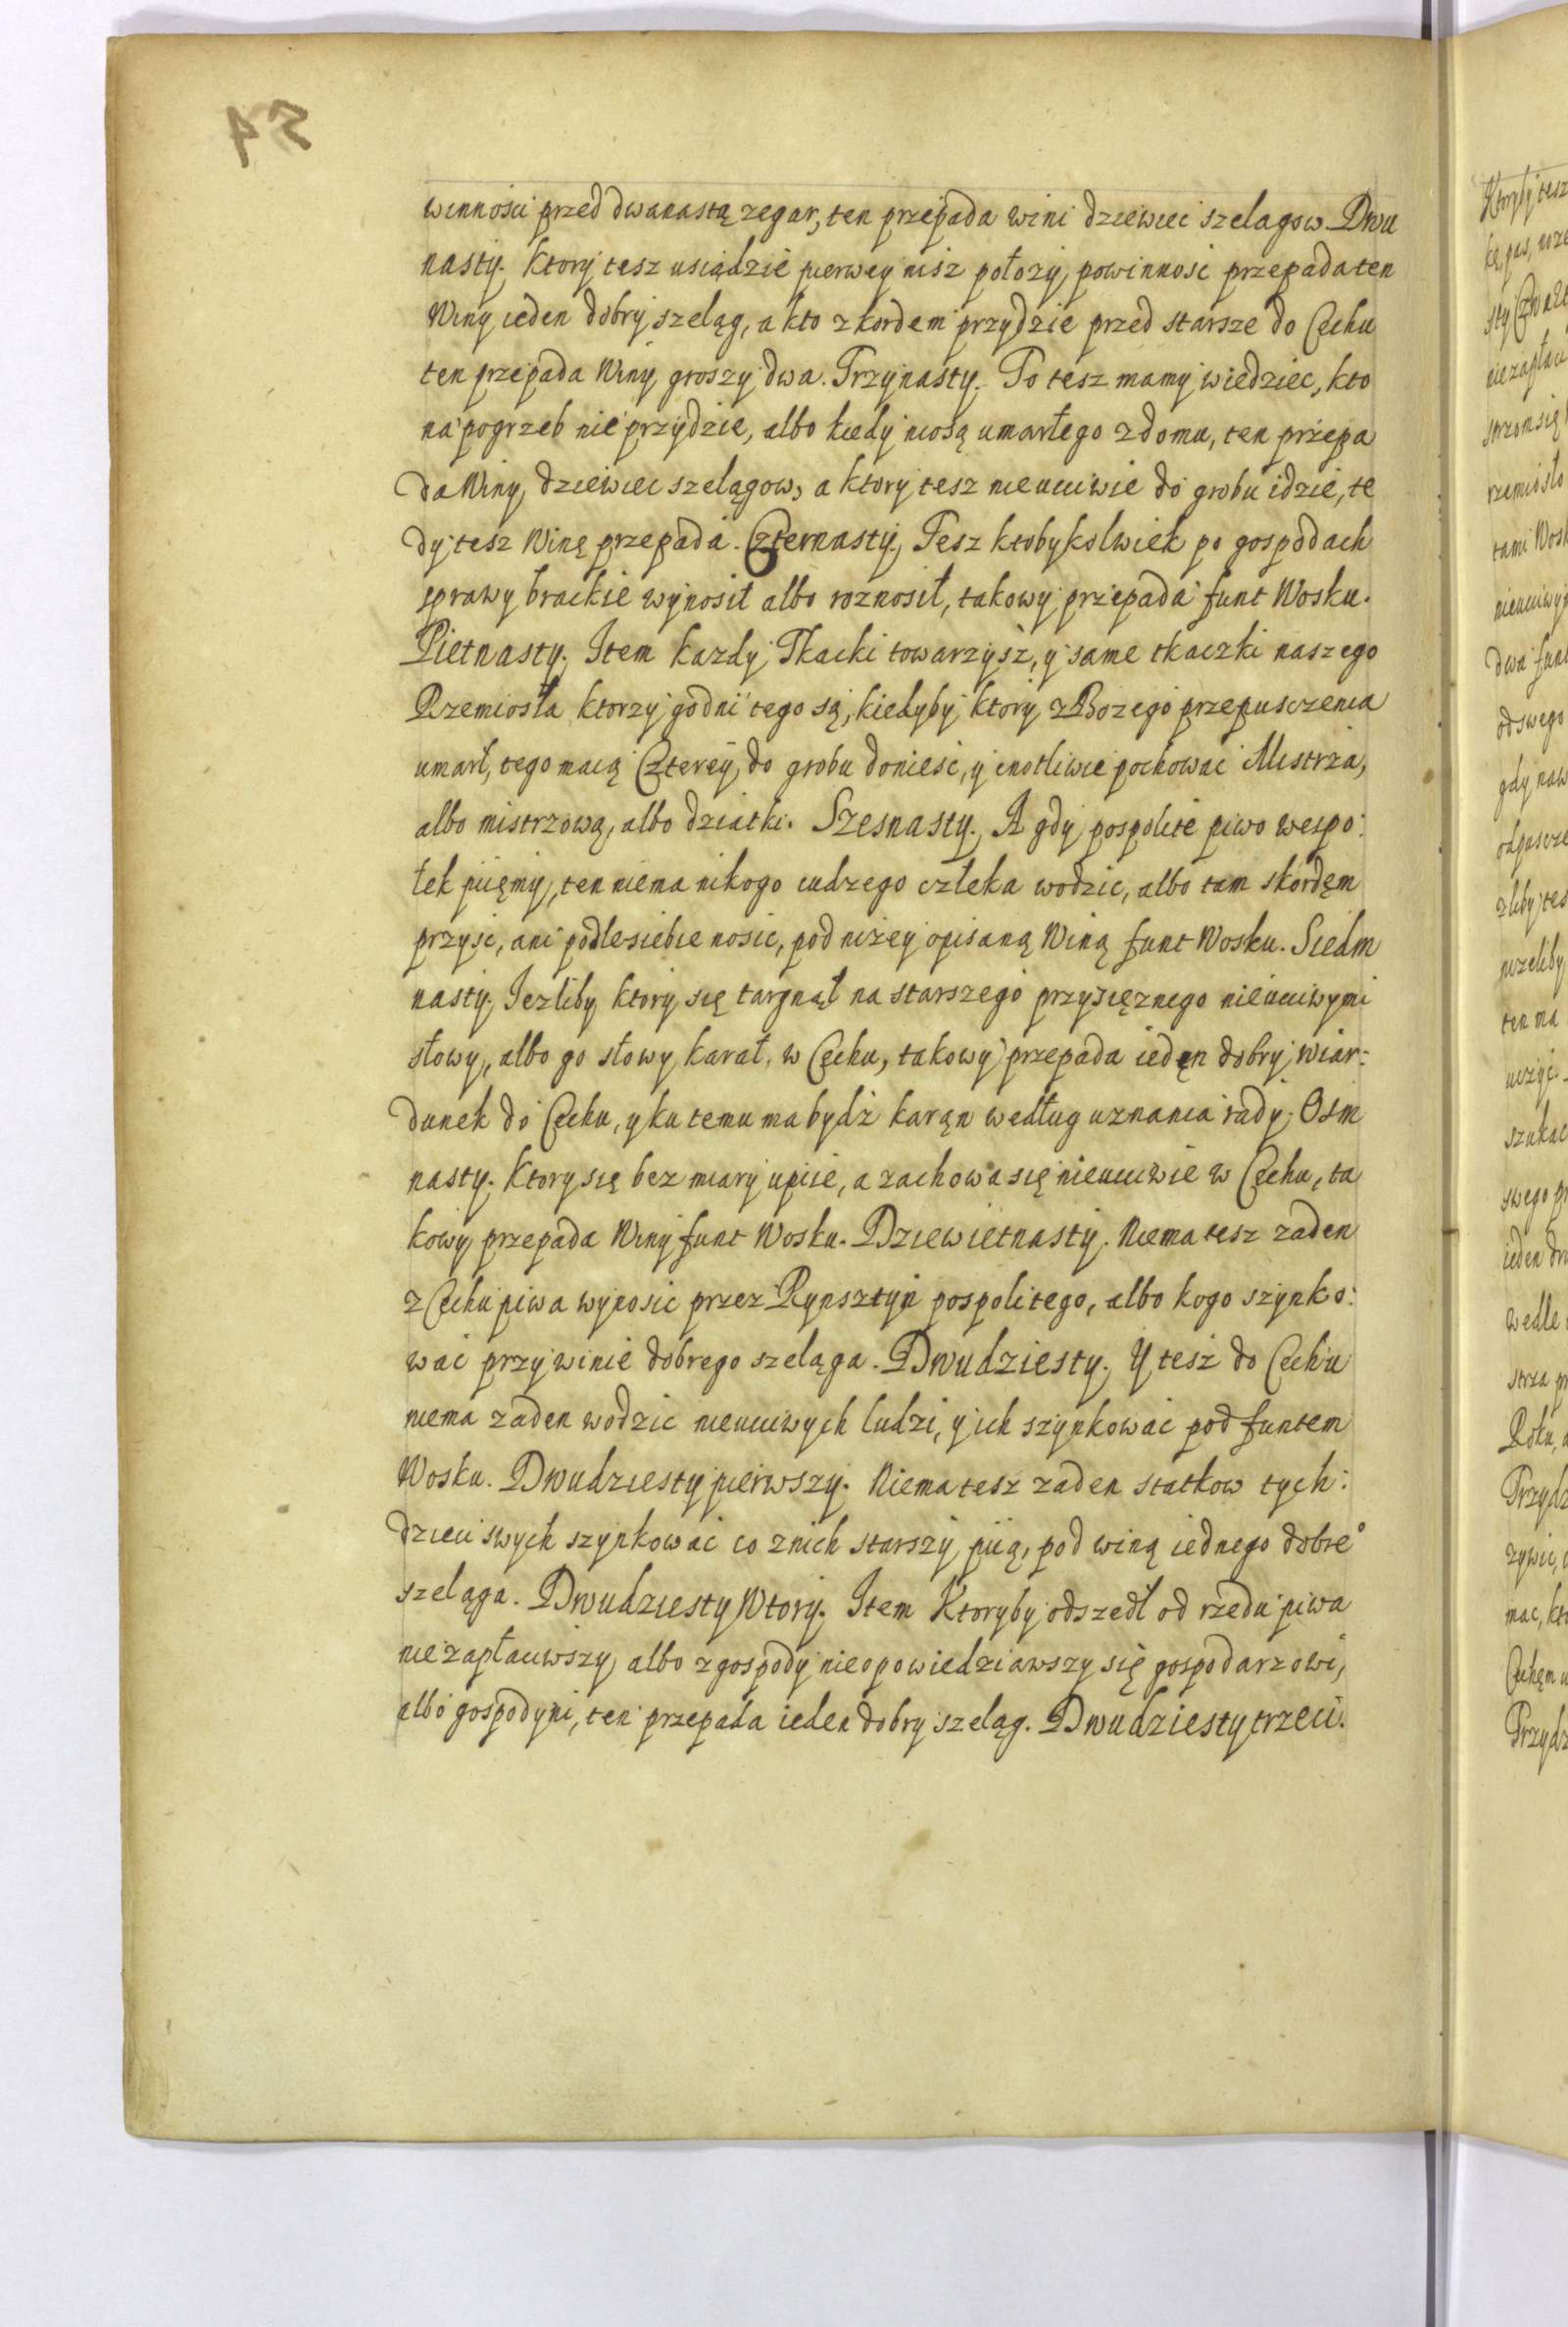 54
winnosci przed dwanastą zegar, ten przepada wini dziewiec szelagow. Dwu
nasty. Ktory tesz usiądzie pierwey nisz położy powinnosc przepada ten
Winy ieden dobry szeląg, a kto z kordem przydzie przed starsze do Cechu
ten przepada Winy groszy dwa. Trzynasty. To tesz mamy wiedziec, kto
na pogrzeb nie przydzie, albo kiedy niosą umarłego z domu, ten przepa
da Winy dziewiec szelągow, a ktory tesz nieuciwie do grobu idzie, te
dy tesz Winę przepada. Czternasty. Tesz ktobykolwiek po gospodach
sprawy brackie wynosił albo roznosił, takowy przepada funt Wosku.
Pietnasty. Item kazdy Tkacki towarzysz, y same tkaczki naszego
Rzemiosła ktorzy godni tego są, kiedyby ktory z Bozego przepusczenia
umarł, tego maią Czterey do grobu doniesc, y cnotliwie pochowac Mistrza,
albo mistrzową, albo dziatki. Szesnasty. A gdy pospolite piwo wespo:
łek piięmy, ten niema nikogo cudzego człeka wodzic, albo tam skordęm
przysc, ani podle siebie nosic, pod nizey opisaną Winą funt Wosku. Siedm
nasty. Iezliby ktory się targnął na starszego przysięznego nieuciwymi
słowy, albo go słowy karał, w Cechu, takowy przepada iedęn dobry wiar:
dunek do Cechu, y ku temu ma bydz karąn według uznania rady. Osm
nasty. Ktory się bez miary upiie, a zachowa się nieuciwie w Cechu, ta
kowy przepada Winy funt Wosku. Dziewietnasty. Niema tesz zaden
z Cechu piwa wynosic przez Rynsztyn pospolitego, albo kogo szynko:
wac przy winie dobrego szeląga. Dwudziesty. Y tesz do Cechu
niema zaden wodzic nieuciwych ludzi, y ich szynkowac pod funtem
Wosku. Dwudziesty pierwszy. Niema tesz zaden statkow tych:
dzieci swych szynkowac co znich starszy piią, pod winą iednego dobre°
szeląga. Dwudziesty Wtory. Item Ktoryby odszedł od rzedu piwa
niezapłaciwszy albo z gospody nieopowiedziawszy się gospodarzowi,
albo gospodyni, ten przepada ieden dobry szeląg. Dwudziesty trzeci.
Ktoryby tesz
odswego
rzemiosło
tami Wosk
dwa funt
ten ma
szukac
swego
wedle
Roku,